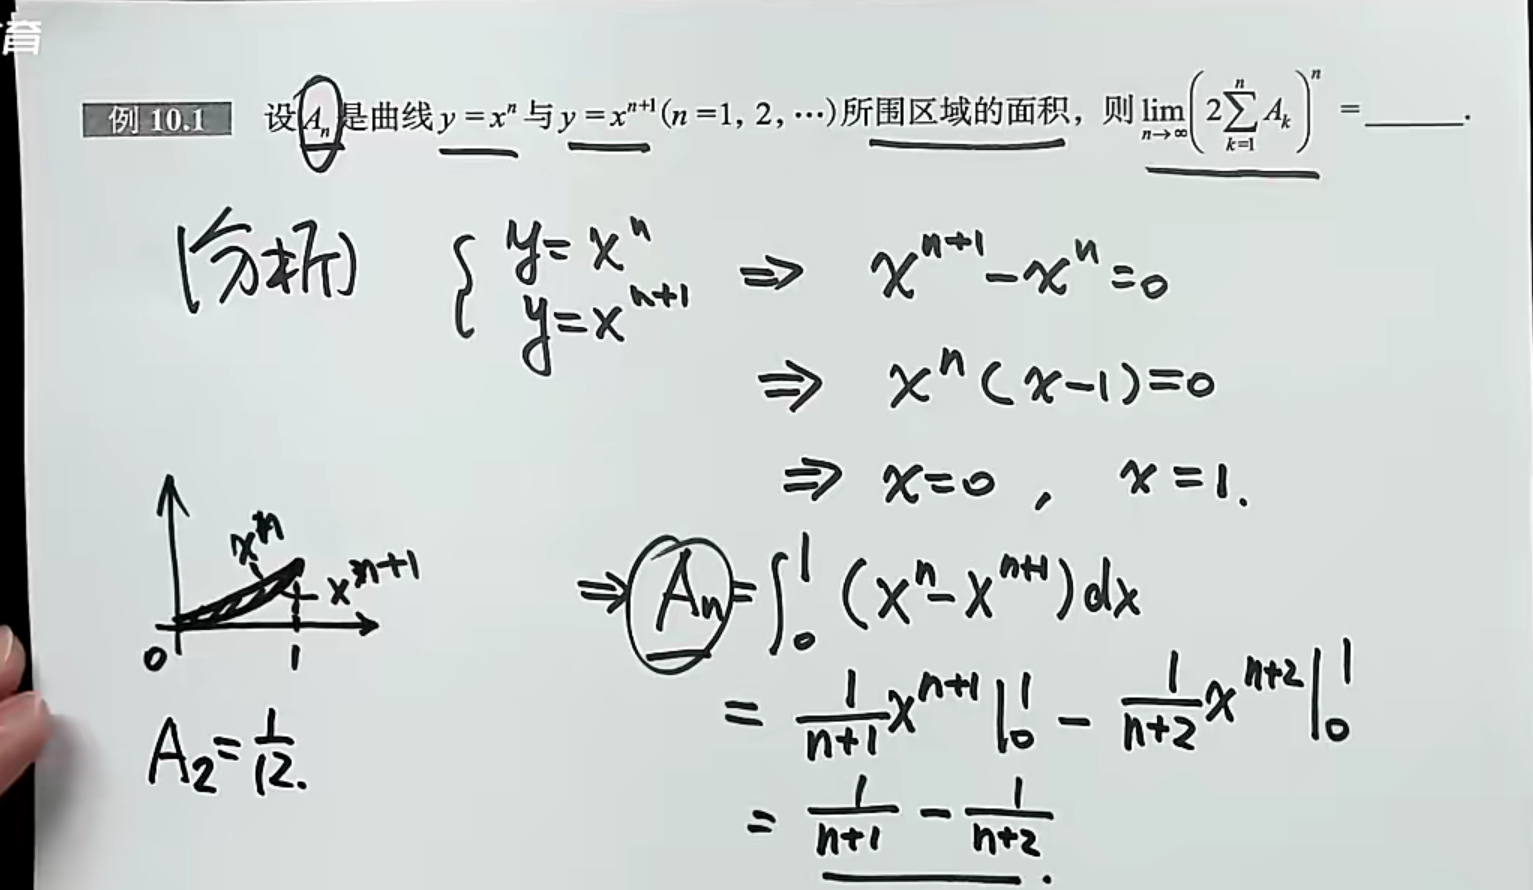 育
例 10.1 设 A_n 是曲线 y = x^n 与 y = x^{n+1} (n = 1, 2, ⋯) 所围区域的面积，则 lim_{n→∞} (2∑_{k=1}^{n} A_k)^n = ______.
(分析) { y = x^n ⇒ x^{n+1} - x^n = 0
y = x^{n+1}
⇒ x^n (x-1) = 0
⇒ x = 0 , x = 1.
x^n
x^{n+1}
0 1
⇒ A_n = ∫_0^1 (x^n - x^{n+1}) dx
= \frac{1}{n+1} x^{n+1} |_0^1 - \frac{1}{n+2} x^{n+2} |_0^1
A_2 = \frac{1}{12}.
= \frac{1}{n+1} - \frac{1}{n+2} .